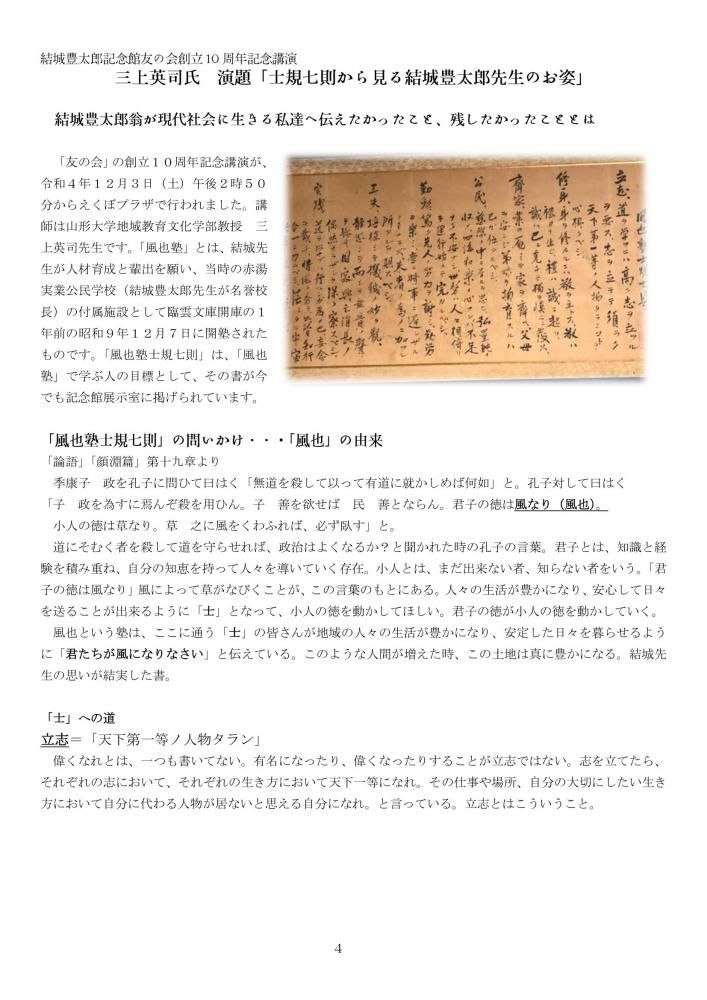 結城豊太郎記念館友の会創立10周年記念講演
三上英司氏　演題「士規七則から見る結城豊太郎先生のお姿」
結城豊太郎翁が現代社会に生きる私達へ伝えたかったこと、残したかったこととは
「友の会」の創立１０周年記念講演が、
令和４年１２月３日（土）午後２時５０
分からえくぼプラザで行われました。講
師は山形大学地域教育文化学部教授　三
上英司先生です。「風也塾」とは、結城先
生が人材育成と輩出を願い、当時の赤湯
実業公民学校（結城豊太郎先生が名誉校
長）の付属施設として臨雲文庫開庫の１
年前の昭和９年１２月７日に開塾された
ものです。「風也塾士規七則」は、「風也
塾」で学ぶ人の目標として、その書が今
でも記念館展示室に掲げられています。
風也塾士規七則
立志
修身
齊家
公民
勤労
工夫
実践
「風也塾士規七則」の問いかけ・・・「風也」の由来
「論語」「顔淵篇」第十九章より
季康子　政を孔子に問ひて曰はく「無道を殺して以って有道に就かしめば何如」と。孔子対して曰はく
「子　政を為すに焉んぞ殺を用ひん。子　善を欲せば　民　善とならん。君子の徳は風なり（風也）。
小人の徳は草なり。草　之に風をくわふれば、必ず臥す」と。
道にそむく者を殺して道を守らせれば、政治はよくなるか？と聞かれた時の孔子の言葉。君子とは、知識と経
験を積み重ね、自分の知恵を持って人々を導いていく存在。小人とは、まだ出来ない者、知らない者をいう。「君
子の徳は風なり」風によって草がなびくことが、この言葉のもとにある。人々の生活が豊かになり、安心して日々
を送ることが出来るように「士」となって、小人の徳を動かしてほしい。君子の徳が小人の徳を動かしていく。
風也という塾は、ここに通う「士」の皆さんが地域の人々の生活が豊かになり、安定した日々を暮らせるよう
に「君たちが風になりなさい」と伝えている。このような人間が増えた時、この土地は真に豊かになる。結城先
生の思いが結実した書。
「士」への道
立志＝「天下第一等ノ人物タラン」
偉くなれとは、一つも書いてない。有名になったり、偉くなったりすることが立志ではない。志を立てたら、
それぞれの志において、それぞれの生き方において天下一等になれ。その仕事や場所、自分の大切にしたい生き
方において自分に代わる人物が居ないと思える自分になれ。と言っている。立志とはこういうこと。
4